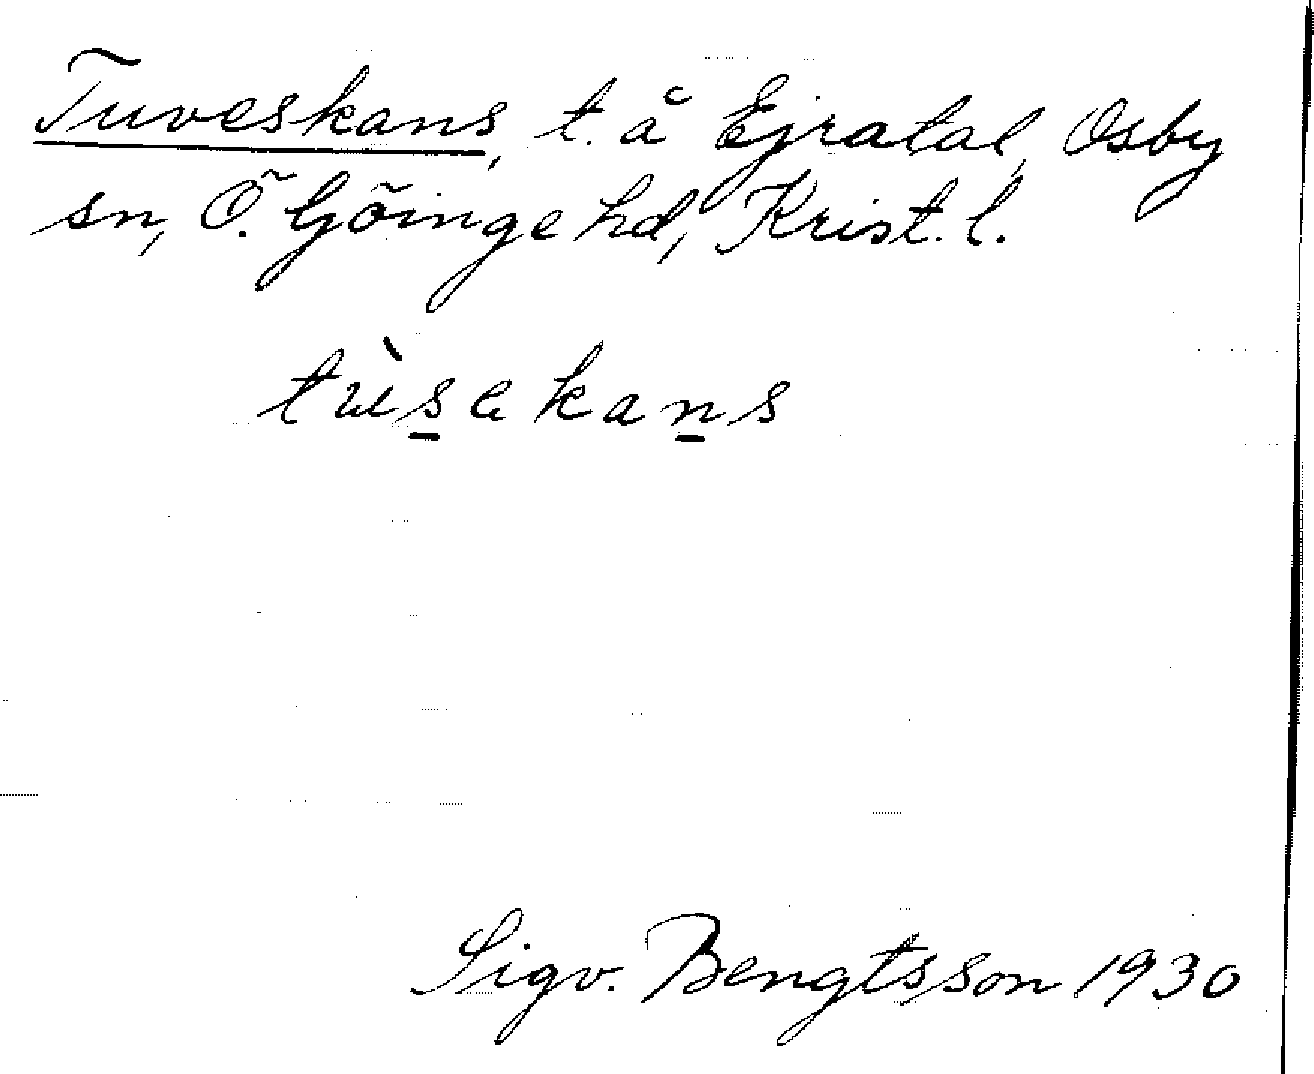 Tuveskans, t. å Ejratal, Osby
sn, Ö. Göinge hd, Krist. l.
tùsekans
Sigv. Bengtsson 1930